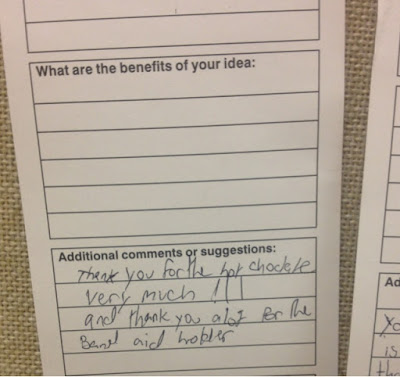 What are the benefits of your idea:
Additional comments or suggestions:
Thank you for the hot chockle
very much !!!
and thank you alot for the
Band aid holder
Ad
Yo
is
tha